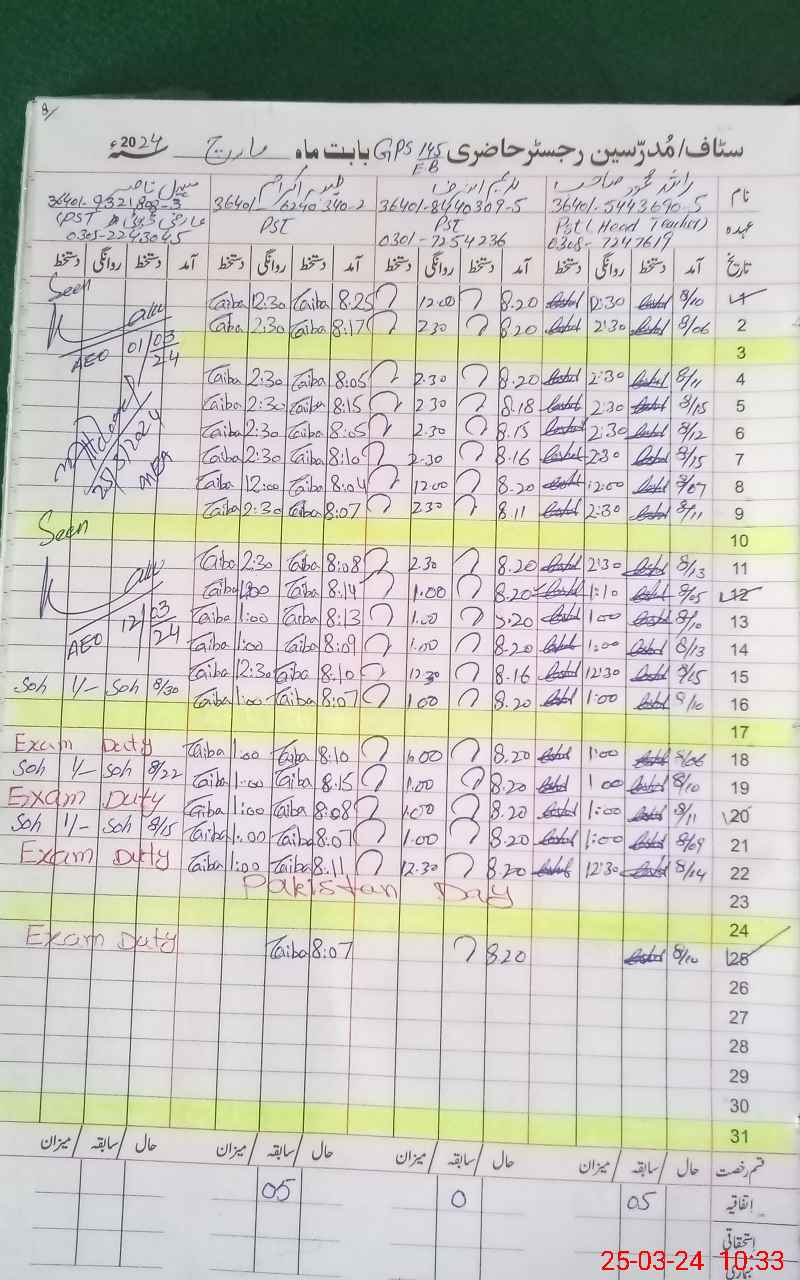 8/
سٹاف/مُدرّسین رجسٹر حاضری GPS 145/EB بابت ماہ مارچ سنہ 2024ء
نام راشد محمود صاحب طیبہ اکرام
36401-5443690-5 36401-8440309-5 36401-6240340-2 36401-9321809-3
عہدہ Pst (Head Teacher) Pst PST (PST
0308-7247619 0301-7254236 0305-2243045
تاریخ آمد دستخط روانگی دستخط آمد دستخط روانگی دستخط آمد دستخط روانگی دستخط آمد دستخط روانگی دستخط
Seen
1 8/10 12:30 8.20 12.00 8.25 Taiba 12:30 Taiba
2 8/06 2:30 8.20 2.30 8:17 Taiba 2:30 Taiba
AEO 01/03/24
3
4 8/11 2:30 8.20 2.30 8:05 Taiba 2:30 Taiba
5 8/15 2:30 8.18 2.30 8:15 Taiba 2:30 Taiba
6 8/12 2:30 8.15 2.30 8:05 Taiba 2:30 Taiba
7 8/15 2:30 8.16 2.30 8:10 Taiba 2:30 Taiba
25/3/2024
MEA
8 8/07 12:00 8.20 12.00 8:04 Taiba 12:00 Taiba
9 8/11 2:30 8.11 2.30 8:07 Taiba 2:30 Taiba
Seen
10
11 8/13 2:30 8.20 2.30 8:08 Taiba 2:30 Taiba
12 8/05 1:10 8.20 1.00 8:14 Taiba 1:00 Taiba
13 8/10 1:00 8.20 1.00 8:13 Taiba 1:00 Taiba
AEO 12/03/24
14 8/13 1:00 8.20 1.00 8:09 Taiba 1:00 Taiba
15 8/15 12:30 8.16 12.30 8:10 Taiba 12:30 Taiba
16 8/10 1:00 8.20 1.00 8:07 Taiba 1:00 Taiba 8/30 Soh 1/- Soh
17
18 8/06 1:00 8.20 1.00 8:10 Taiba 1:00 Taiba Exam Duty
19 8/10 1:00 8.20 1.00 8:15 Taiba 1:00 Taiba 8/22 Soh 1/- Soh
20 8/11 1:00 8.20 1.00 8:08 Taiba 1:00 Taiba Exam Duty
21 8/09 1:00 8.20 1.00 8:07 Taiba 1:00 Taiba 8/15 Soh 1/- Soh
22 8/14 12:30 8.20 12.30 8:11 Taiba 1:00 Taiba Exam Duty
23 Pakistan Day
24
25 8/10 8.20 8:07 Taiba Exam Duty
26
27
28
29
30
31
قسم رخصت حال سابقہ میزان حال سابقہ میزان حال سابقہ میزان حال سابقہ میزان
اتفاقیہ 05 0 05
استحقاقی
بیماری
25-03-24 10:33